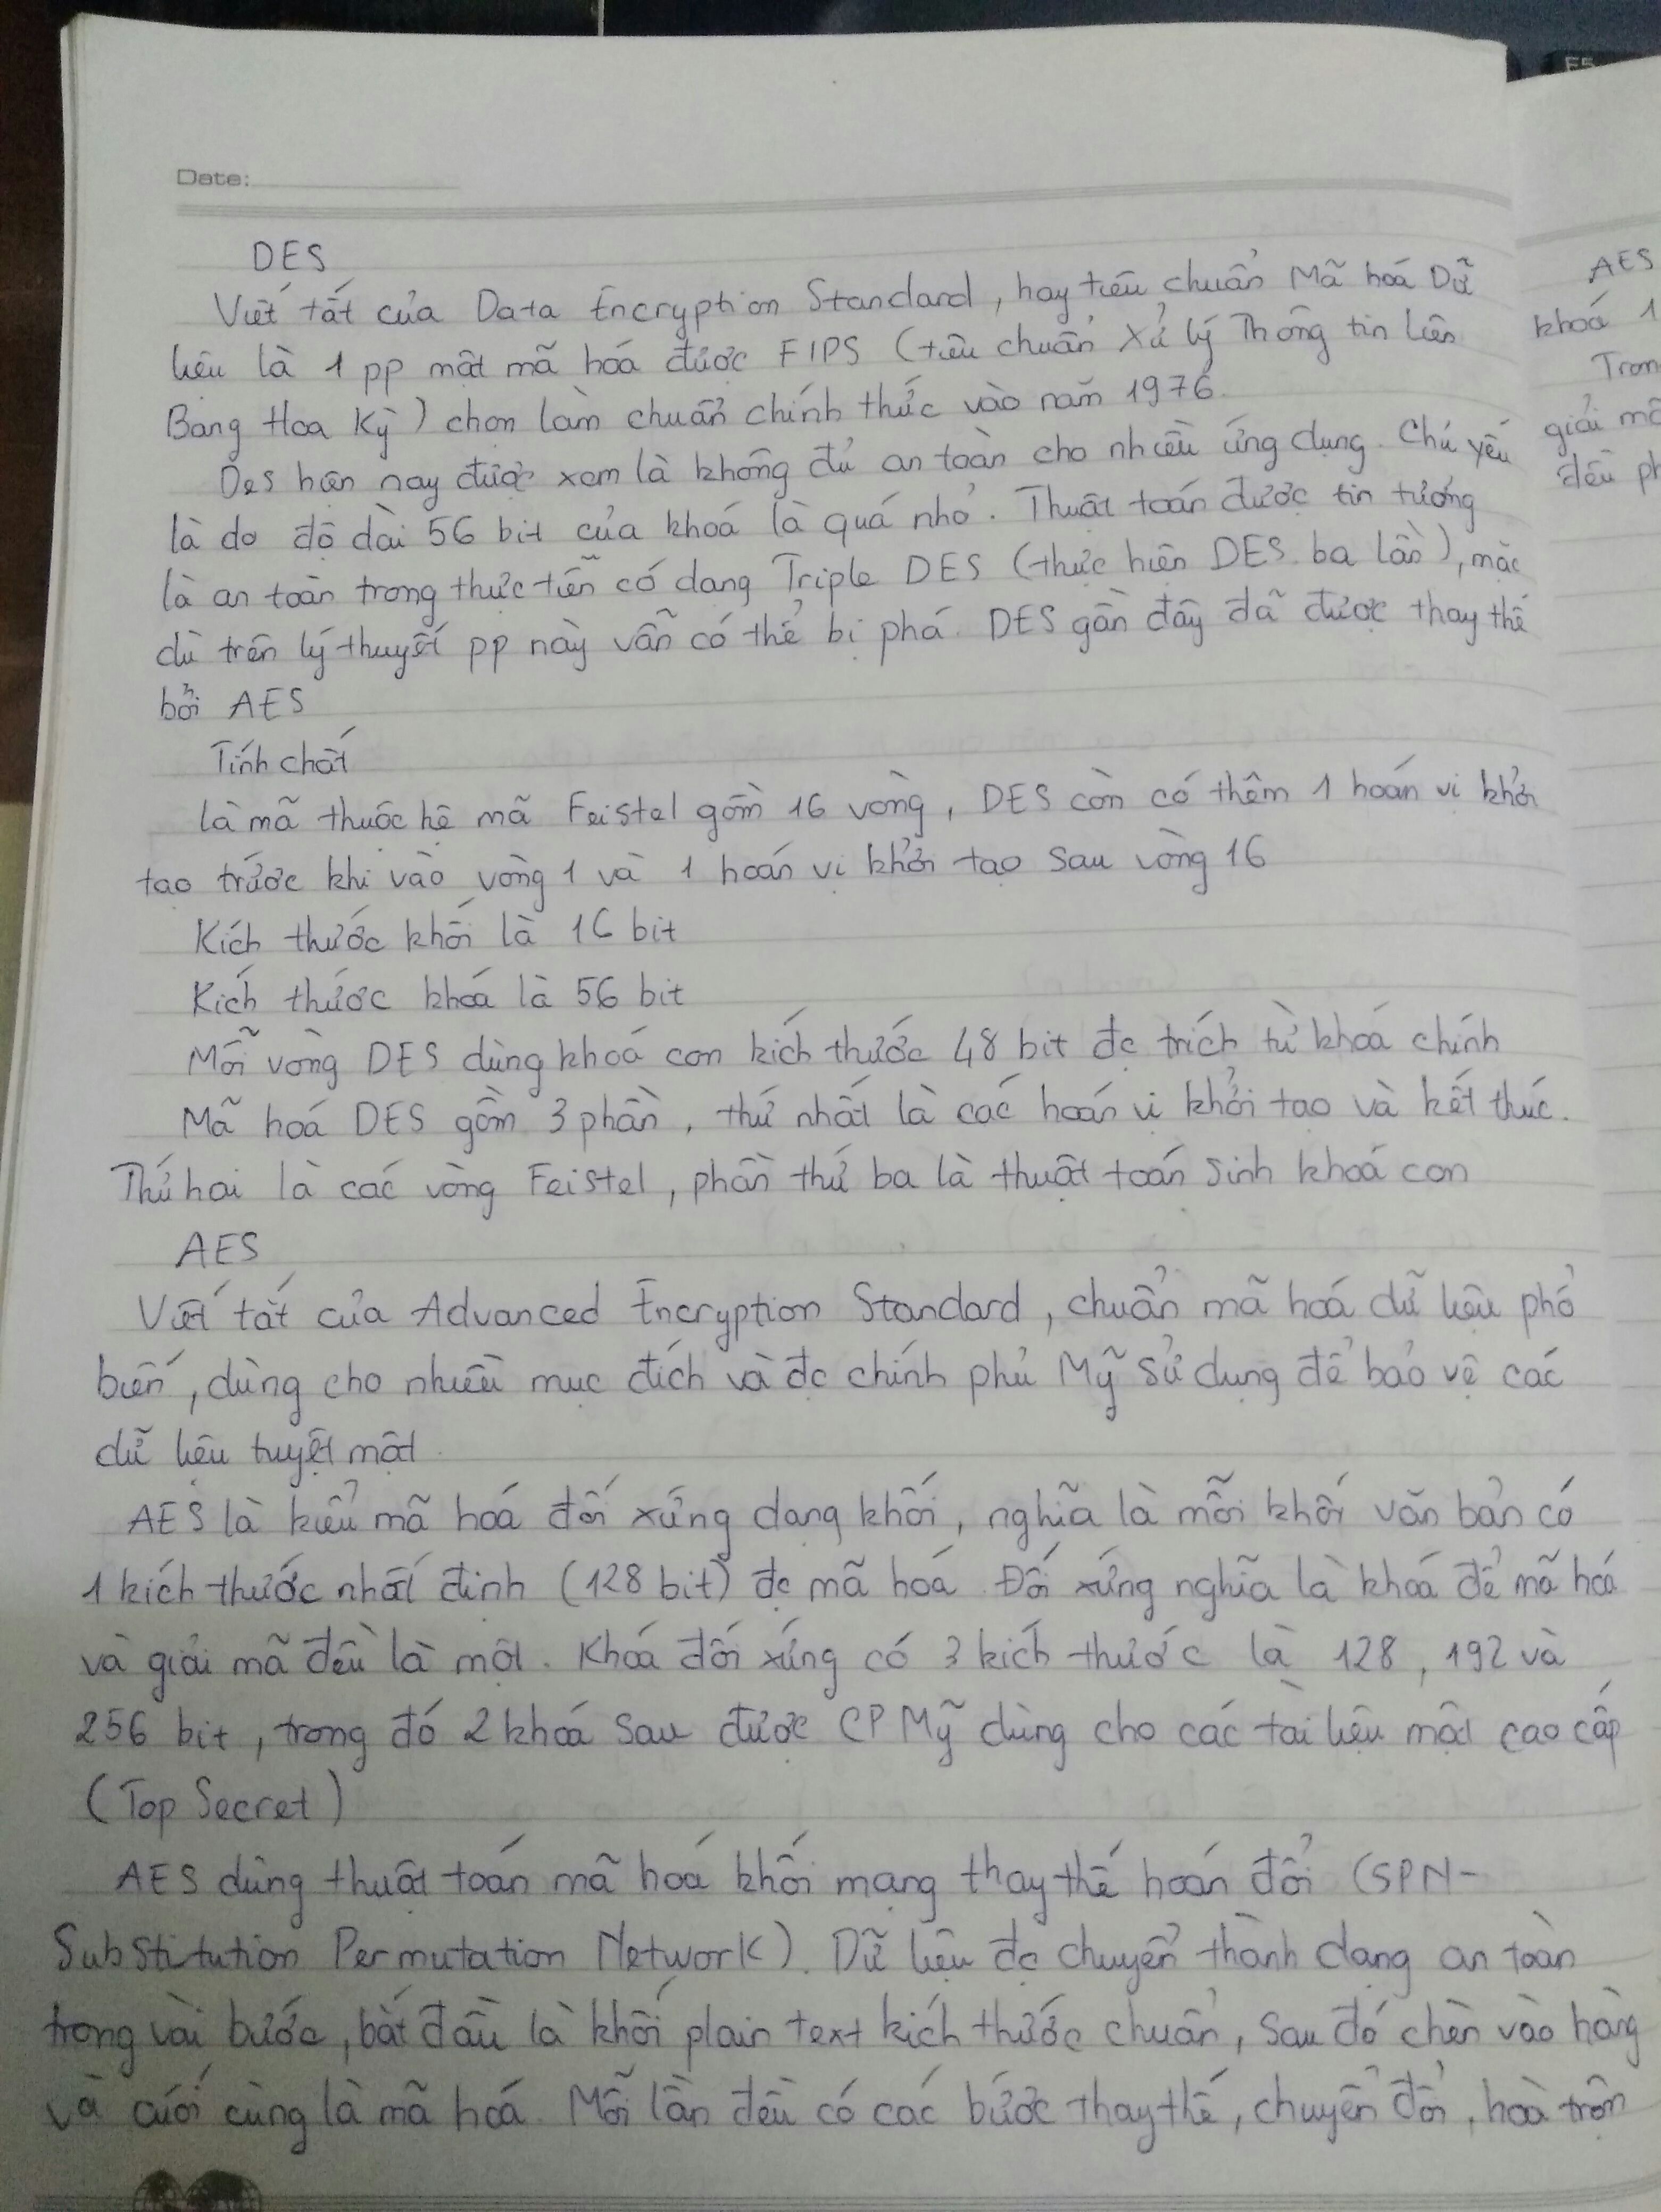 Date:
DES
Viết tắt của Data Encryption Standard, hay tiêu chuẩn Mã hoá Dữ
liệu là 1 pp mật mã hoá được FIPS (tiêu chuẩn Xử lý Thông tin Liên
Bang Hoa Kỳ) chọn làm chuẩn chính thức vào năm 1976.
Des hiện nay được xem là không đủ an toàn cho nhiều ứng dụng. Chủ yếu
là do độ dài 56 bit của khoá là quá nhỏ. Thuật toán được tin tưởng
là an toàn trong thực tiễn có dạng Triple DES (thực hiện DES ba lần), mặc
dù trên lý thuyết pp này vẫn có thể bị phá. DES gần đây đã được thay thế
bởi AES
Tính chất
Là mã thuộc hệ mã Feistel gồm 16 vòng, DES còn có thêm 1 hoán vị khởi
tạo trước khi vào vòng 1 và 1 hoán vị khởi tạo sau vòng 16
Kích thước khối là 16 bit
Kích thước khoá là 56 bit
Mỗi vòng DES dùng khoá con kích thước 48 bit đc trích từ khoá chính
Mã hoá DES gồm 3 phần, thứ nhất là các hoán vị khởi tạo và kết thúc.
Thứ hai là các vòng Feistel, phần thứ ba là thuật toán sinh khoá con
AES
Viết tắt của Advanced Encryption Standard, chuẩn mã hoá dữ liệu phổ
biến, dùng cho nhiều mục đích và đc chính phủ Mỹ sử dụng để bảo vệ các
dữ liệu tuyệt mật.
AES là kiểu mã hoá đối xứng dạng khối, nghĩa là mỗi khối văn bản có
1 kích thước nhất định (128 bit) đc mã hoá. Đối xứng nghĩa là khoá để mã hoá
và giải mã đều là một. Khoá đối xứng có 3 kích thước là 128, 192 và
256 bit, trong đó 2 khoá sau được CP Mỹ dùng cho các tài liệu mật cao cấp
(Top Secret)
AES dùng thuật toán mã hoá khối mạng thay thế hoán đổi (SPN-
Substitution Permutation Network). Dữ liệu đc chuyển thành dạng an toàn
trong vài bước, bắt đầu là khối plain text kích thước chuẩn, sau đó chèn vào hàng
và cuối cùng là mã hoá. Mỗi lần đều có các bước thay thế, chuyển đổi, hoà trộn
AES
khoá 1
giải mã
F5